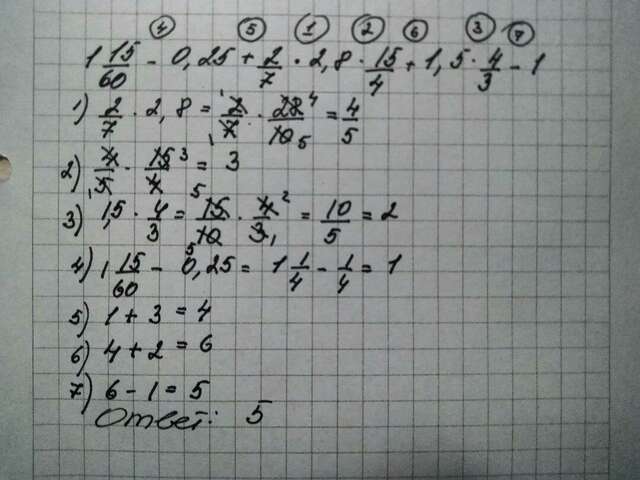 ④ ⑤ ① ② ⑥ ③ ⑦
1 15/60 - 0,25 + 2/7 · 2,8 · 15/4 + 1,5 · 4/3 - 1
1) 2/7 · 2,8 = 2/7 · 28/10 = 4/5
2) 4/5 · 15/4 = 3
3) 1,5 · 4/3 = 15/10 · 4/3 = 10/5 = 2
4) 1 15/60 - 0,25 = 1 1/4 - 1/4 = 1
5) 1 + 3 = 4
6) 4 + 2 = 6
7) 6 - 1 = 5
Ответ: 5